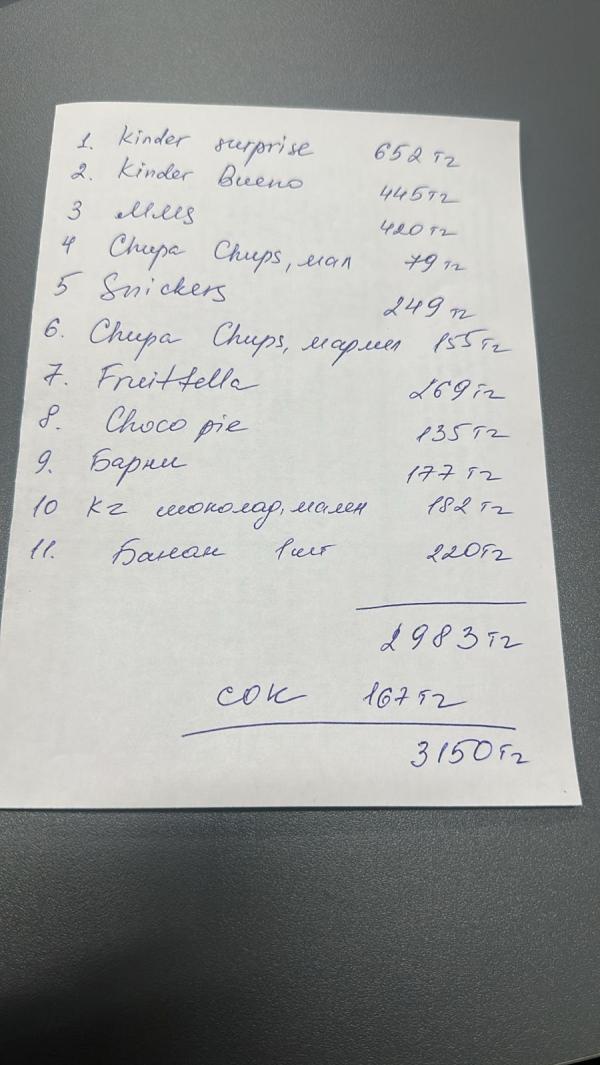 1. Kinder surprise 652 тг
2. Kinder Bueno 445 тг
3 MMs 420 тг
4 Chupa Chups, мал 79 тг
5 Snickers 249 тг
6. Chupa Chups, мармел 155 тг
7. Fruittella 269 тг
8. Choco pie 135 тг
9. Барни 177 тг
10 Кг шоколад, мален 182 тг
11. Банан 1 шт 220 тг
2983 тг
сок 167 тг
3150 тг